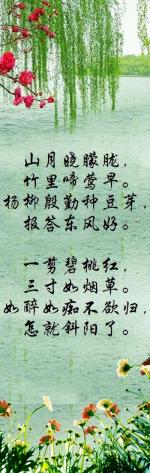 山月晓朦胧，
竹里啼莺早。
杨柳殷勤种豆芽，
报答东风好。
一剪碧桃红，
三寸如烟草。
如醉如痴不欲归，
怎就斜阳了。